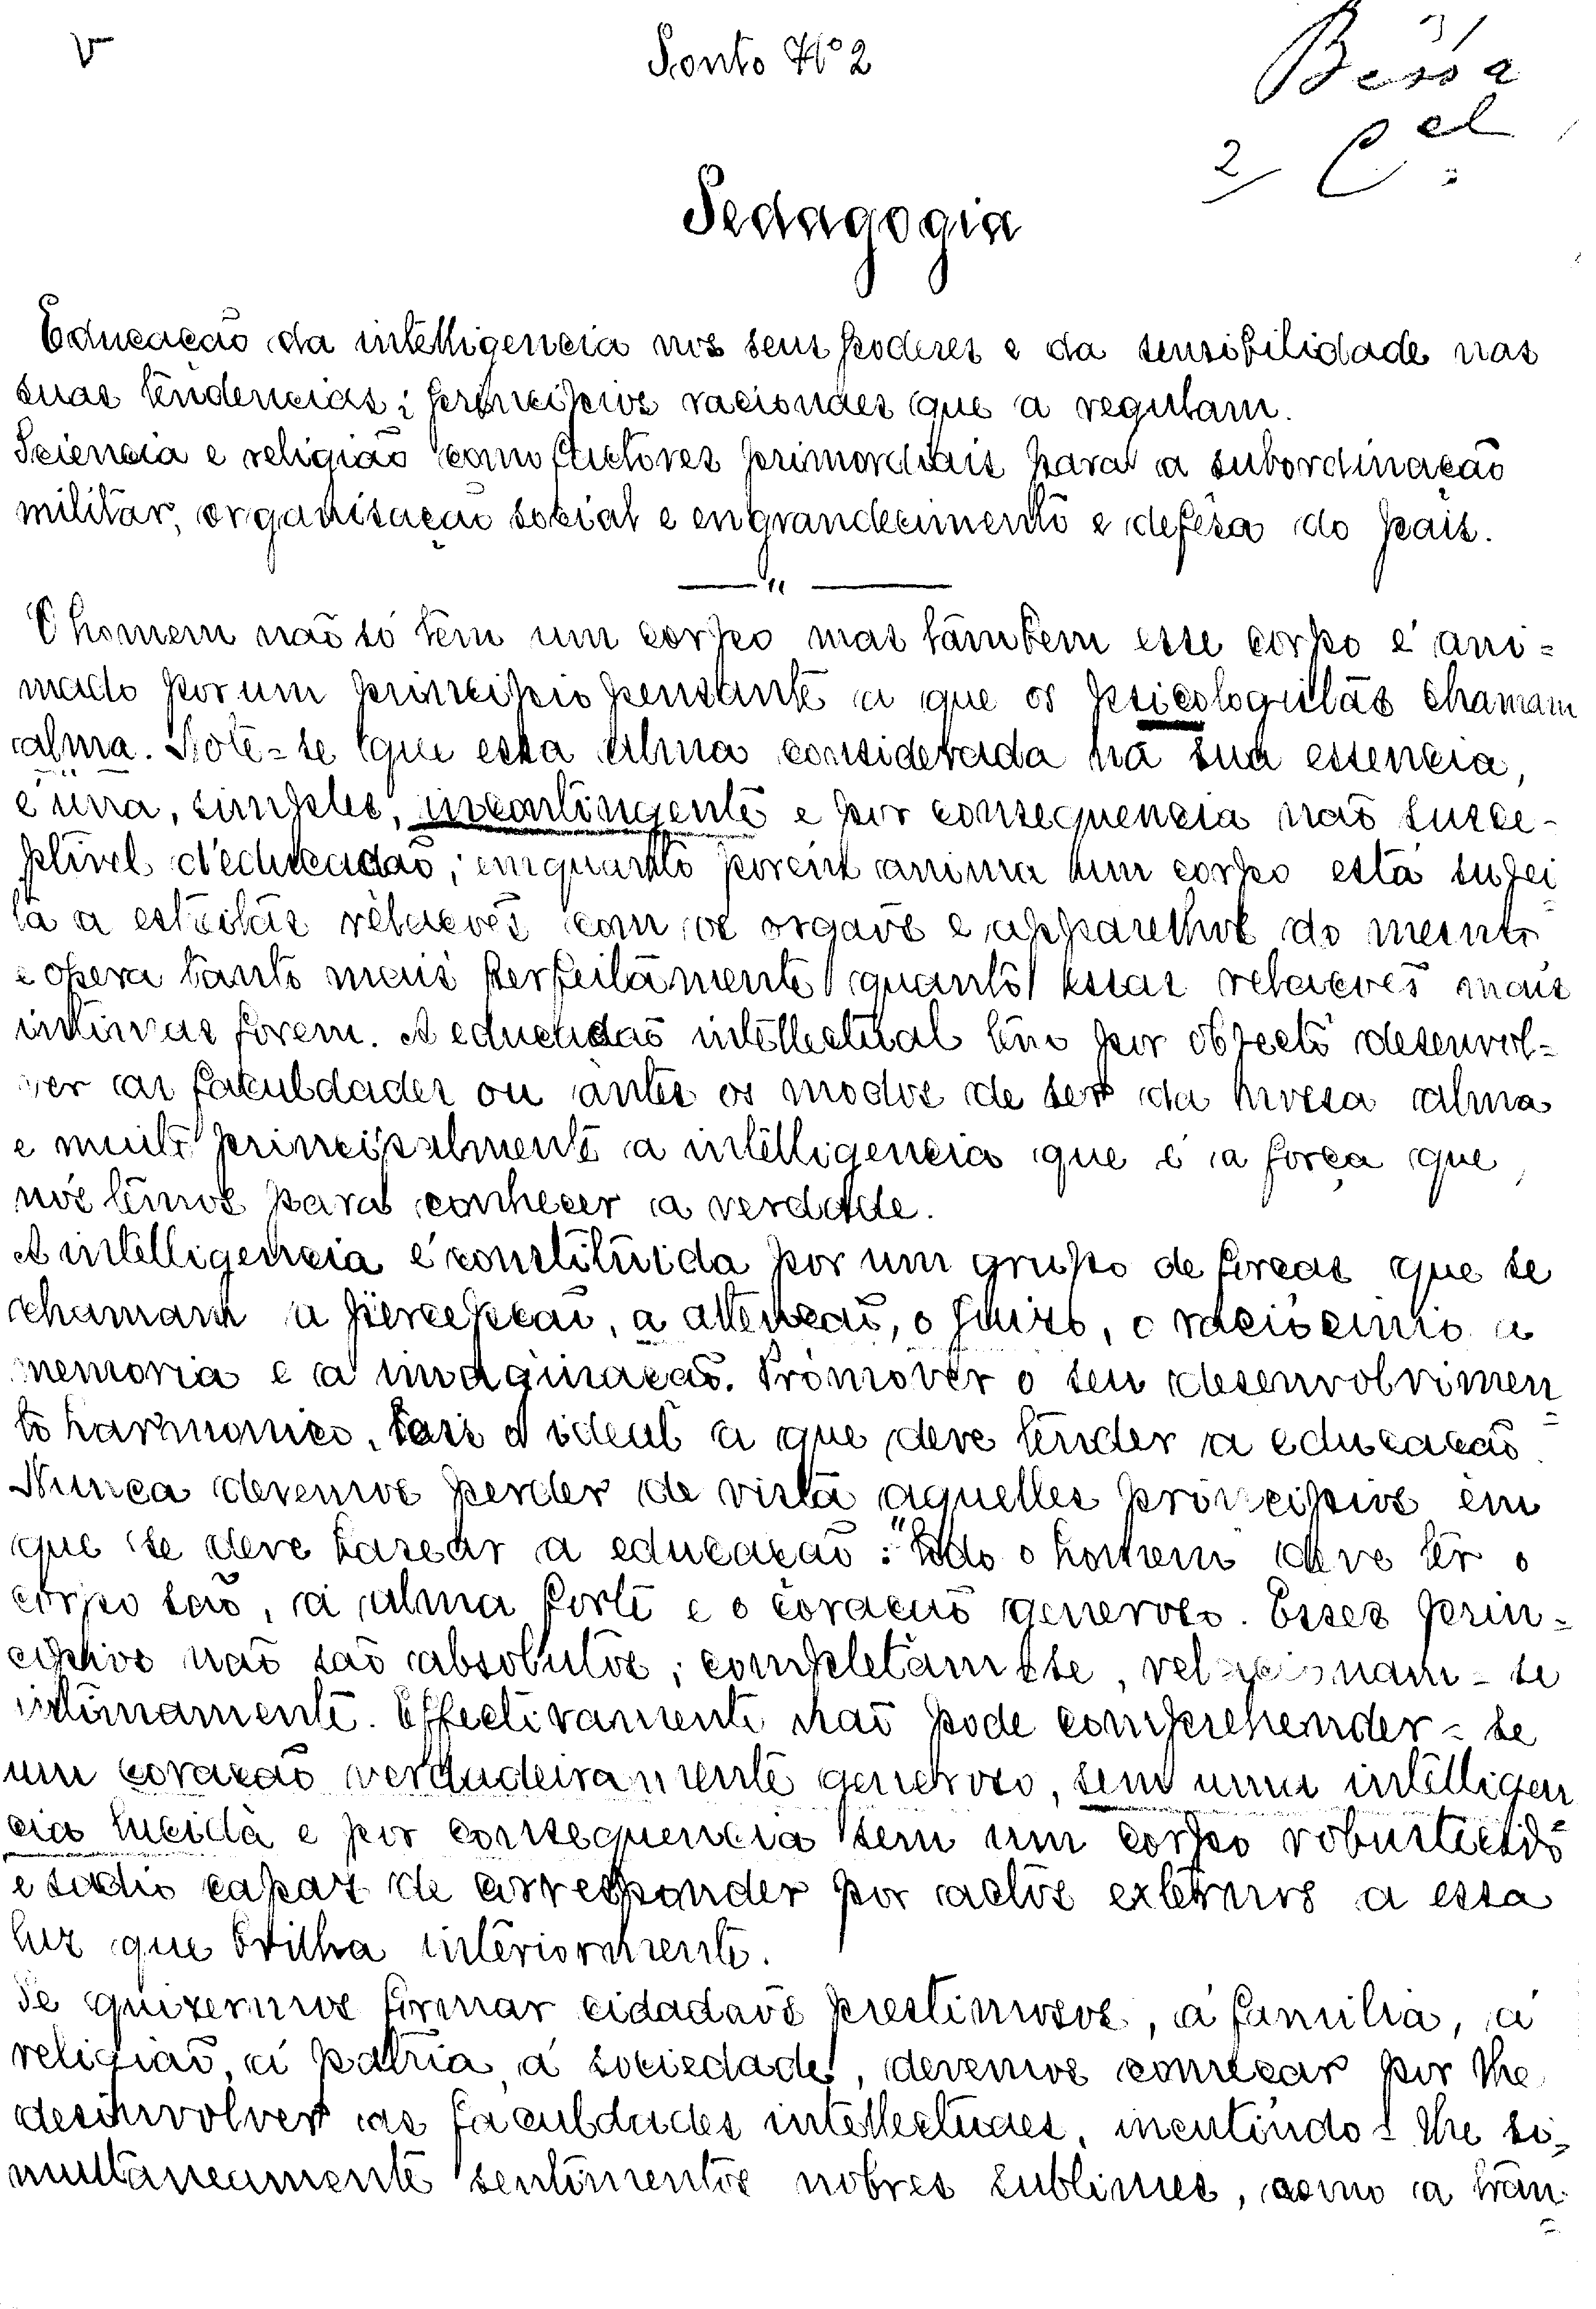 V
Ponto Nº 2
Bessa
2/ Cel
Pedagogia
Educação da intelligencia nos seus poderes e da sensibilidade nas
suas tendencias; principios racionaes que a regulam.
Sciencia e religião como factores primordiais para a subordinação
militar, organisação social e engrandecimento e defêsa do pais.
—— " ——
O homem não só tem um corpo mas tâmbem esse corpo é ani=
mado por um principio pensante a que os psicologistas chamam
alma. Note=se que essa alma considerada na sua essencia,
é una, simples, incontingente e por consequencia não susce-
ptivel d'educação; emquanto porem anima um corpo está sujei=
ta a estreitas relações com os orgãos e apparelhos do mesmo
e opera tanto mais perfeitamente quanto essas relações mais
intimas forem. A educação intellectual têm por objecto desenvol=
ver as faculdades ou antes os modos de ser da nossa alma
e muito principalmente a intelligencia que é a força que
nós têmos para conhecer a verdade.
A intelligencia é constituida por um grupo de forças que se
chamam a percepção, a attenção, o juizo, o raciocinio a
memoria e a imaginação. Promover o seu desenvolvimen=
to harmonico, eis o ideal a que deve tender a educação.
Nunca devemos perder de vista aquelles principios em
que se deve basear a educação: "Todo o homem deve têr o
corpo são, a alma forte e o coração generoso. Esses prin=
cipios não são absolutos; completam=se, relacionam=se
intimamente. Effectivamente não pode comprehender=se
um coração verdadeiramente generoso, sem uma intelligen
cia lucida e por consequencia sem um corpo robustecido
e sadio capaz de corresponder por actos externos a essa
luz que brilha interiormente.
Se quizermos formar cidadãos prestimosos, á familia, á
religião, á patria, á sociedade, devemos começar por lhe
desinvolver as faculdades intellectuaes, incutindo=lhe si=
multaneamente sentimentos nobres sublimes, como a tran=